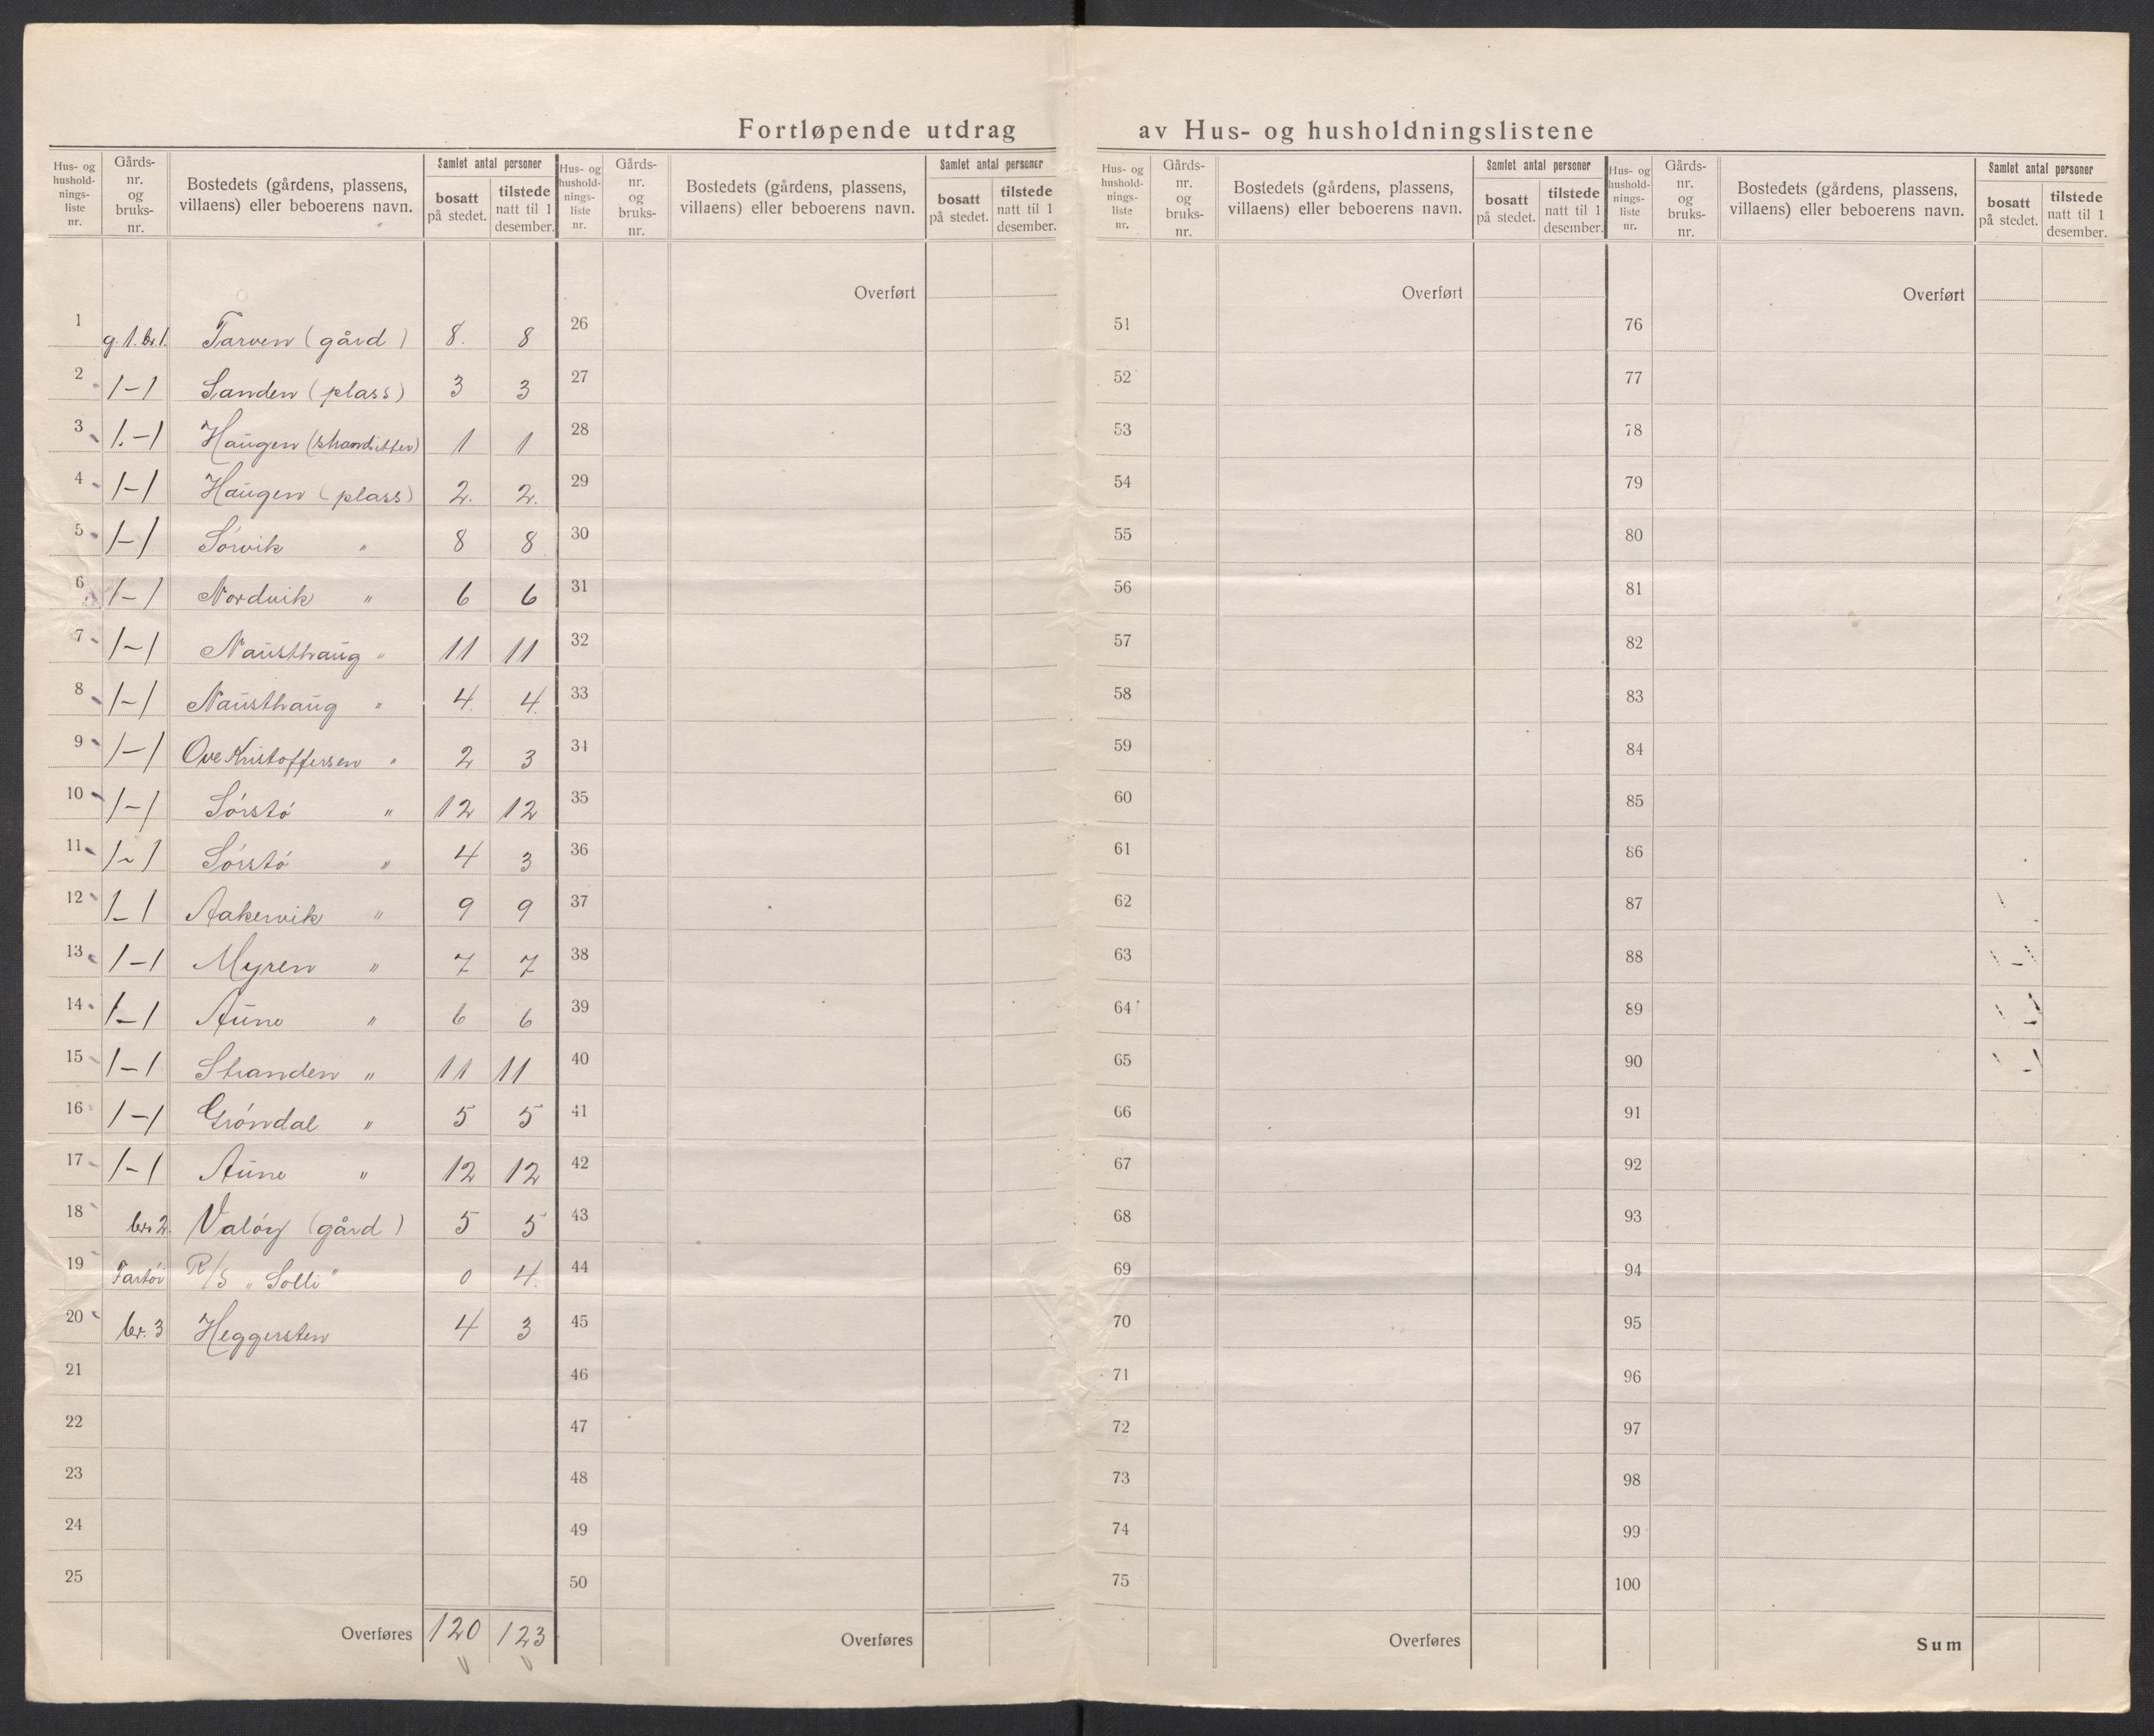 Fortløpende utdrag av Hus- og husholdningslistene
Hus- og hushold-nings-liste nr. | Gårds-nr. og bruks-nr. | Bostedets (gårdens, plassens, villaens) eller beboerens navn. | Samlet antal personer | bosatt på stedet. | tilstede natt til 1 desember.
Hus- og hushold-nings-liste nr. | Gårds-nr. og bruks-nr. | Bostedets (gårdens, plassens, villaens) eller beboerens navn. | Samlet antal personer | bosatt på stedet. | tilstede natt til 1 desember.
Hus- og hushold-nings-liste nr. | Gårds-nr. og bruks-nr. | Bostedets (gårdens, plassens, villaens) eller beboerens navn. | Samlet antal personer | bosatt på stedet. | tilstede natt til 1 desember.
Hus- og hushold-nings-liste nr. | Gårds-nr. og bruks-nr. | Bostedets (gårdens, plassens, villaens) eller beboerens navn. | Samlet antal personer | bosatt på stedet. | tilstede natt til 1 desember.
1 g. 1. br. 1. Tarven (gård) 8. 8
2 1-1 Sanden (plass) 3 3
3 1.-1 Haugen 1 1
4 1-1 Haugen (plass) 2. 2.
5 1-1 Sørvik " 8 8
6 1-1 Nordvik " 6 6
7 1-1 Nausthaug " 11 11
8 1-1 Nausthaug " 4. 4.
9 1-1 Ove Kristoffersen " 2 3
10 1-1 Sørstø " 12 12
11 1-1 Sørstø " 4 3
12 1-1 Aakervik " 9 9
13 1-1 Myren " 7 7
14 1-1 Aune " 6 6
15 1-1 Stranden " 11 11
16 1-1 Grøndal " 5 5
17 1-1 Aune " 12 12
18 br. 2. Valøy (gård) 5 5
19 Fartøi R/S "Solli" 0 4.
20 br. 3 Heggersten 4 3
21
22
23
24
25
Overføres 120 123
Overført
26
27
28
29
30
31
32
33
34
35
36
37
38
39
40
41
42
43
44
45
46
47
48
49
50
Overføres
Overført
51
52
53
54
55
56
57
58
59
60
61
62
63
64
65
66
67
68
69
70
71
72
73
74
75
Overføres
Overført
76
77
78
79
80
81
82
83
84
85
86
87
88
89
90
91
92
93
94
95
96
97
98
99
100
Sum